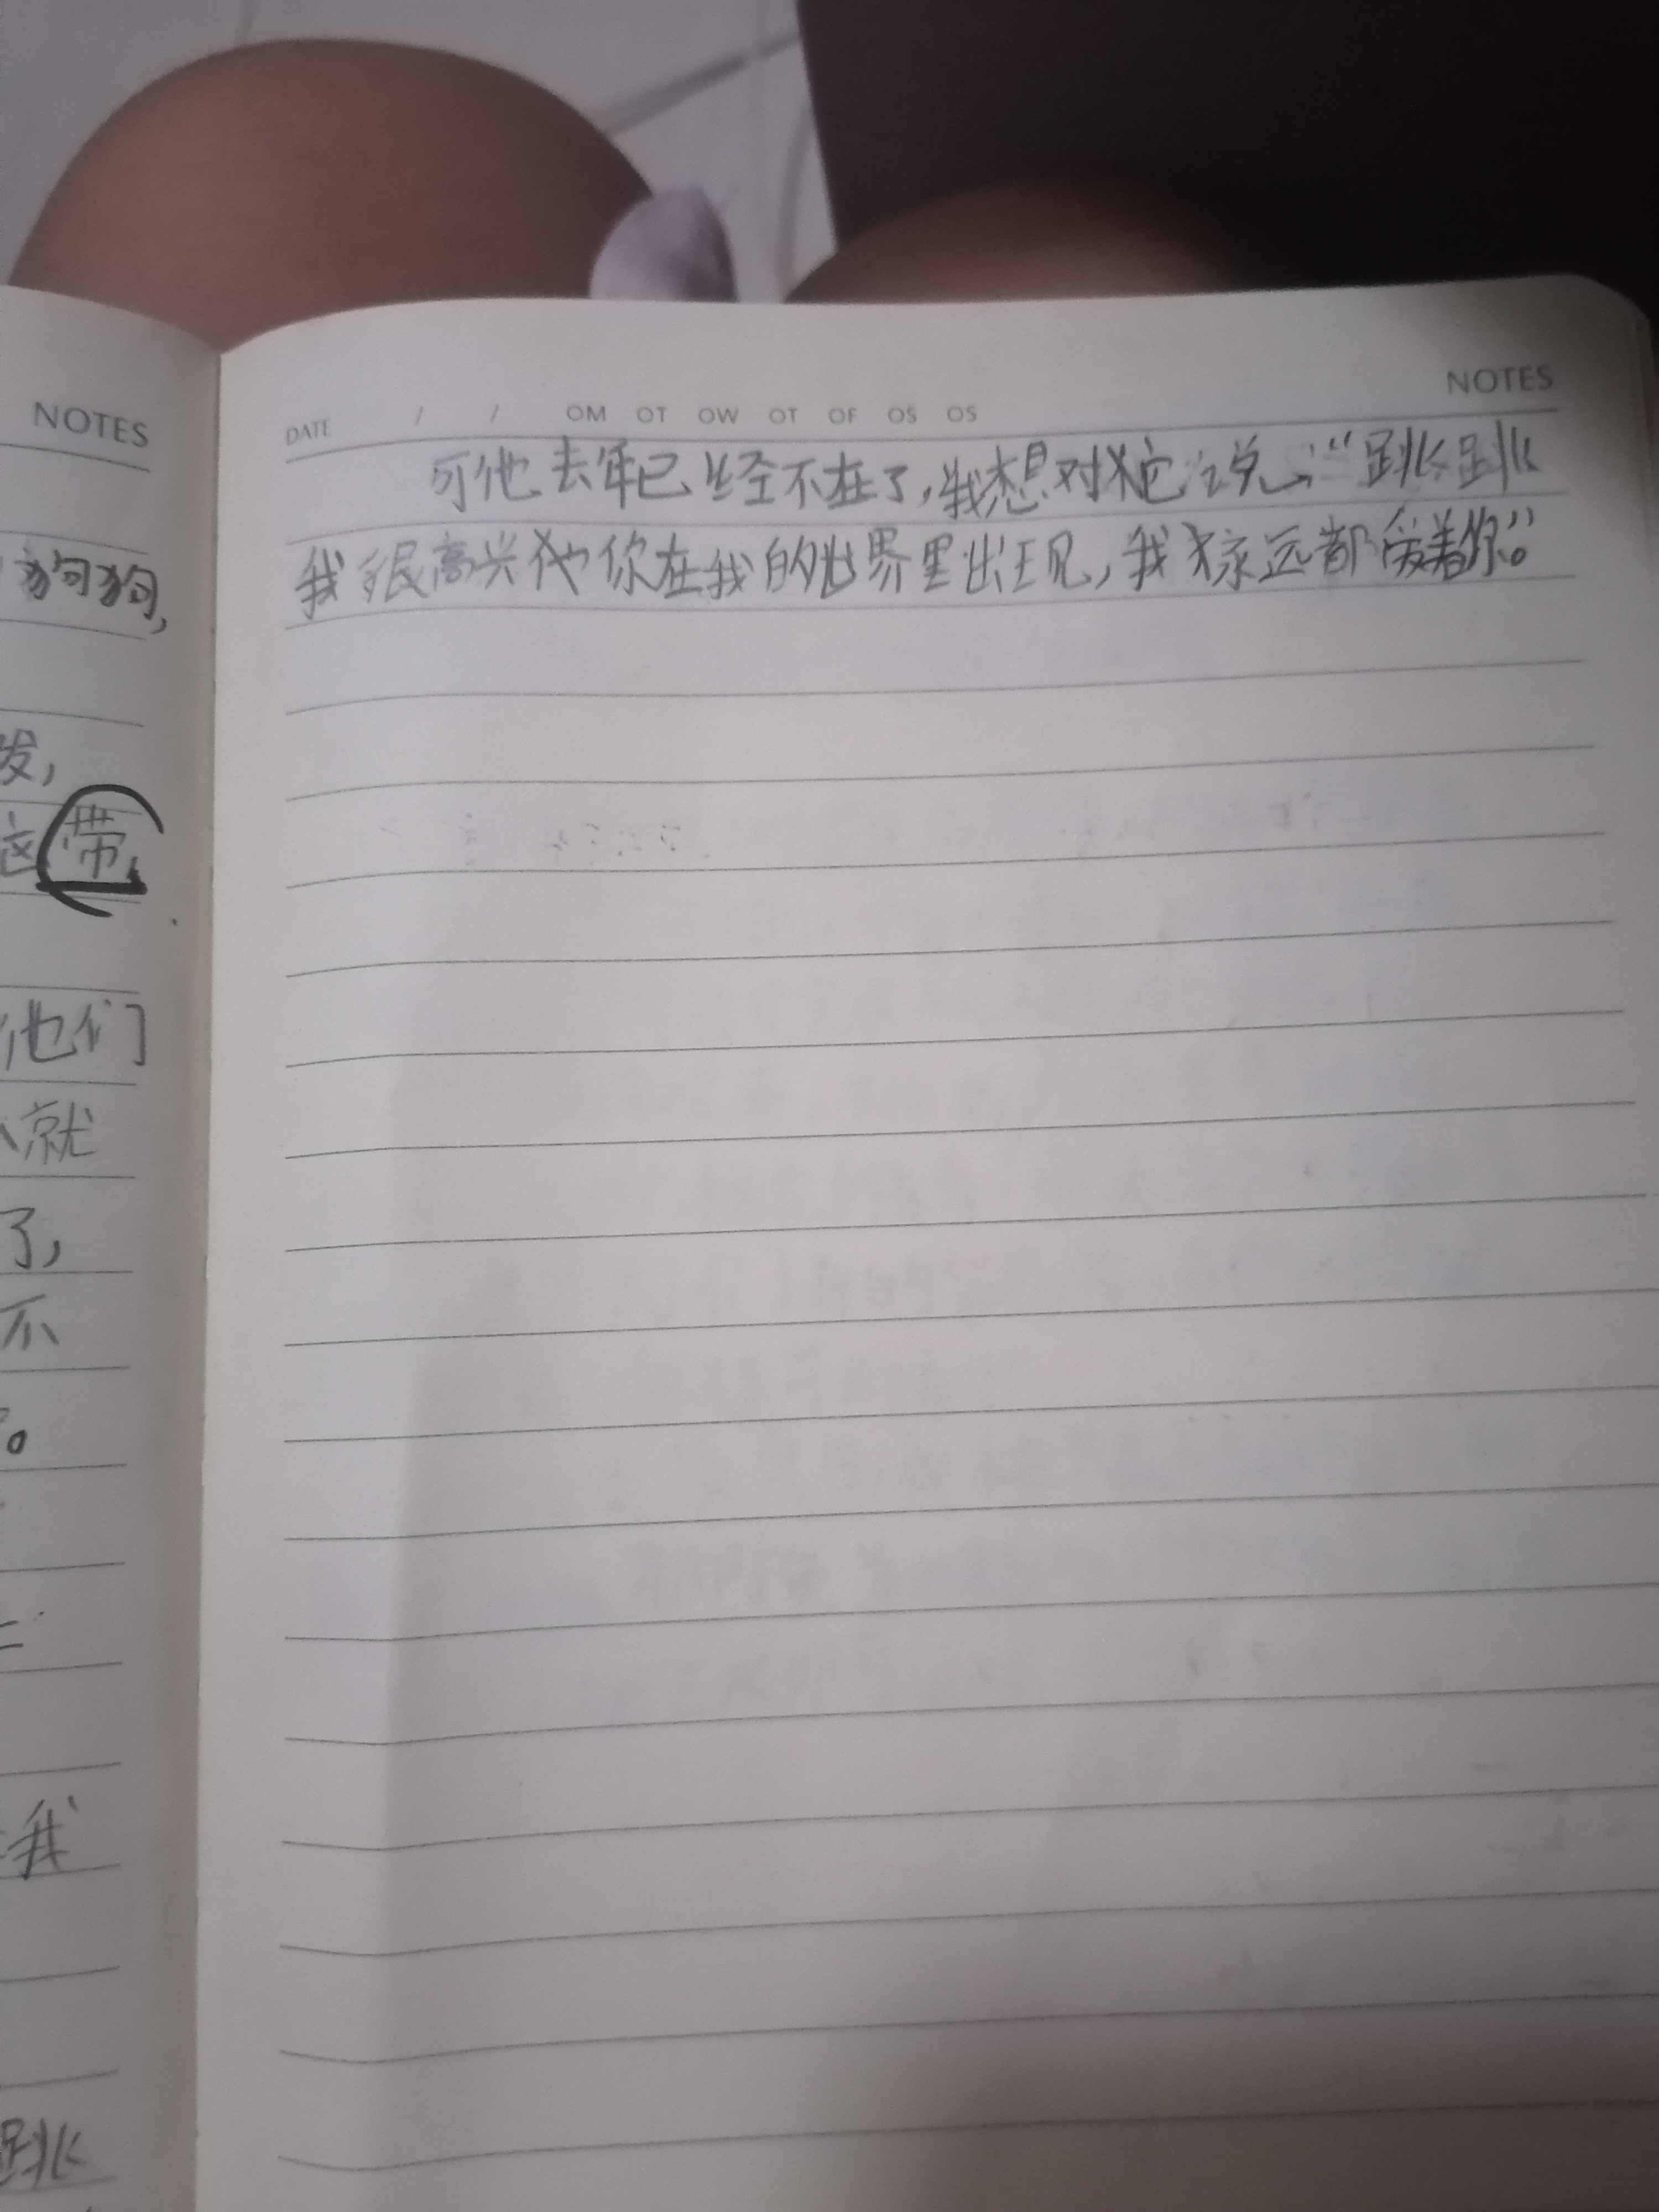 NOTES
狗狗,
发,
这带,
他们
就
了,
不
。
我
跳
NOTES
DATE / / OM OT OW OT OF OS OS
可他去年已经不在了,我想对它说:“跳跳
我很高兴他你在我的世界里出现,我永远都爱着你”。